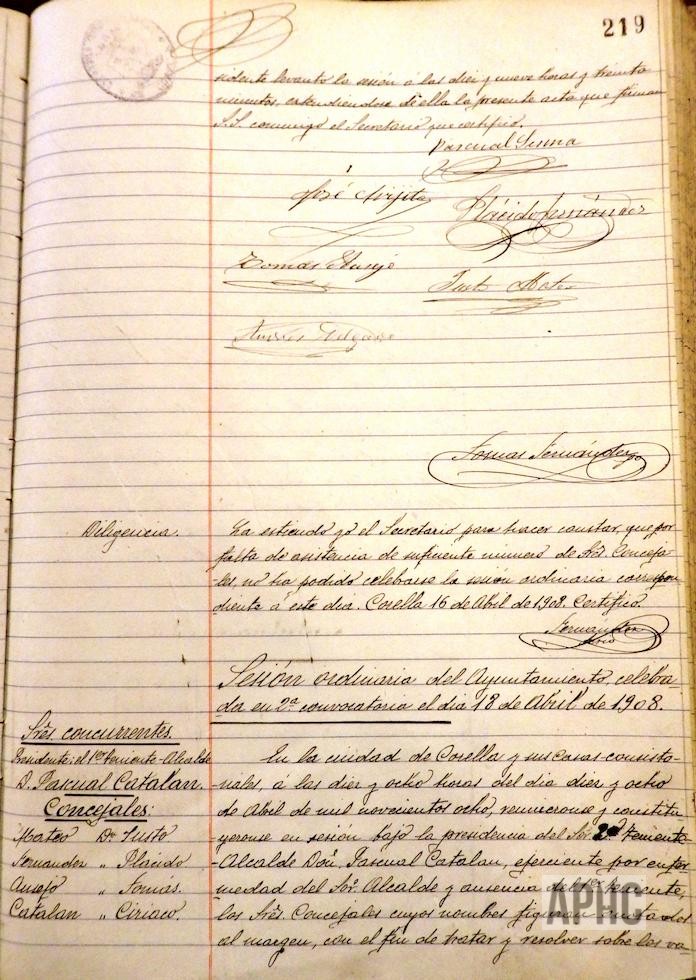 219
sidente levantó la sesión á las diez y nueve horas y treinta
minutos, extendiendose de ella la presente acta que firman
S.S. conmigo el Secretario que certifico.
Pascual Sesma
José
Plácido Fernández
Tomás Ausejo
Justo Mateo
Tomás Fernández
Diligencia.
La extiendo yo el Secretario para hacer constar, que por
falta de asistencia de suficiente numero de Srēs. Conceja-
les, no ha podido celebrarse la sesión ordinaria correspon
diente á este dia. Corella 16 de Abril de 1908. Certifico.
Fernández
Srio
Sesión ordinaria del Ayuntamiento, celebra-
da en 2ª convocatoria el dia 18 de Abril de 1908.
Srēs concurrentes.
Presidente: el 1er Teniente-Alcalde
D. Pascual Catalan.
Concejales:
Mateo Dn Justo
Fernandez " Plácido
Ausejo " Tomas.
Catalan " Ciriaco.
En la ciudad de Corella y sus casas consisto-
riales, á las diez y ocho horas del dia diez y ocho
de Abril de mil novecientos ocho, reunieronse y constitu
yeronse en sesión bajo la presidencia del Sor. 2º Teniente-
Alcalde Don Pascual Catalan, ejerciente por enfer
medad del Sor. Alcalde y ausencia del 1er Teniente,
los Srēs. Concejales cuyos nombres figuran anotados
al margen, con el fin de tratar y resolver sobre los va-
APHC